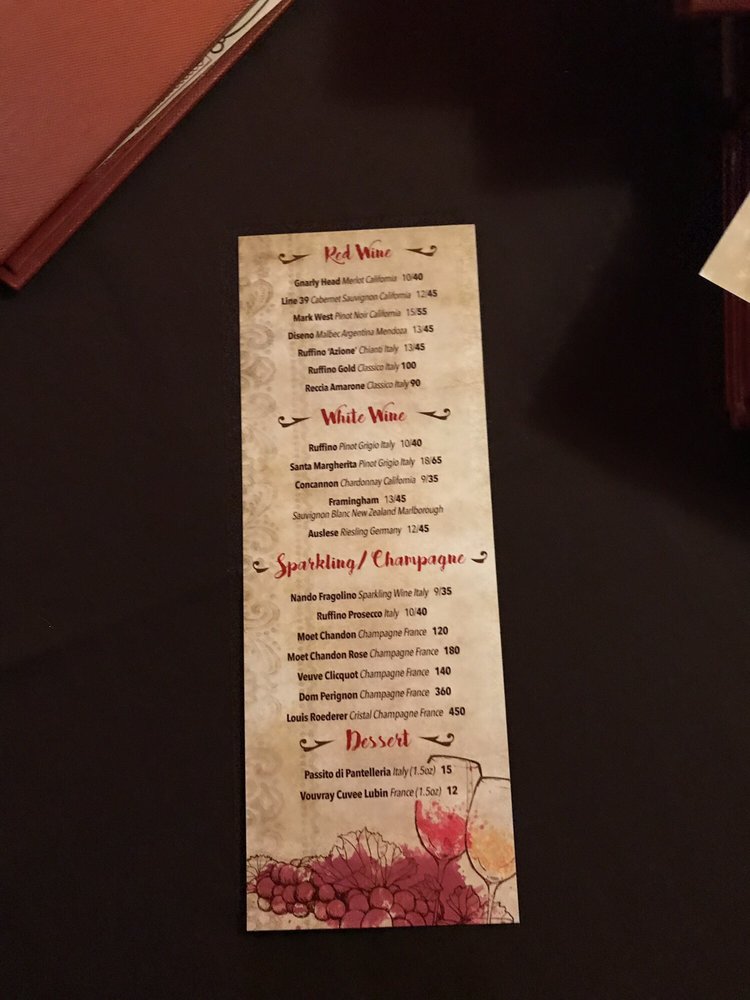 Red Wine
Gnarly Head Merlot California 10/40
Line 39 Cabernet Sauvignon California 12/45
Mark West Pinot Noir California 15/55
Diseno Malbec Argentina Mendoza 13/45
Ruffino 'Azione' Chianti Italy 13/45
Ruffino Gold Classico Italy 100
Reccia Amarone Classico Italy 90
White Wine
Ruffino Pinot Grigio Italy 10/40
Santa Margherita Pinot Grigio Italy 18/65
Concannon Chardonnay California 9/35
Framingham 13/45
Sauvignon Blanc New Zealand Marlborough
Auslese Riesling Germany 12/45
Sparkling/Champagne
Nando Fragolino Sparkling Wine Italy 9/35
Ruffino Prosecco Italy 10/40
Moet Chandon Champagne France 120
Moet Chandon Rose Champagne France 180
Veuve Clicquot Champagne France 140
Dom Perignon Champagne France 360
Louis Roederer Cristal Champagne France 450
Dessert
Passito di Pantelleria Italy (1.5oz) 15
Vouvray Cuvee Lubin France (1.5oz) 12